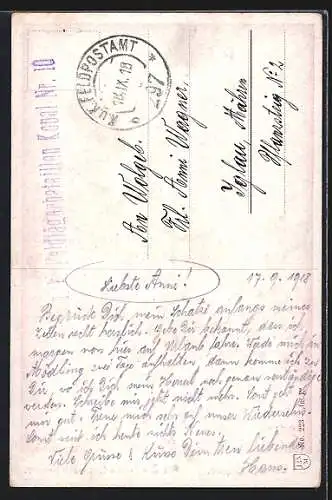 Feldjägerbataillon Kobal Nr. 10
K.u.K. FELDPOSTAMT
18.IX.18
297
An Wolgeb.
Frl. Anni Wagner
Iglau Mähren
No 2
Liebste Anni!
17.9.1918
Begrüße Dich mein Schatzi anfangs meiner
Zeilen recht herzlich. Gebe Dir bekannt, dass ich
morgen von hier auf Urlaub fahre. Werde mich in
Mödling zwei Tage aufhalten, dann komme ich zu
Dir, wo ich Dich mein noch genau verständigen
werde. Schreibe mir jetzt nicht mehr. Sonst geht's
mir gut. Freue mich sehr auf unser Wiedersehen.
Sonst weiß ich heute nichts Neues.
Viele Grüße & Küsse Dein treu liebender
Hans.
No. 223